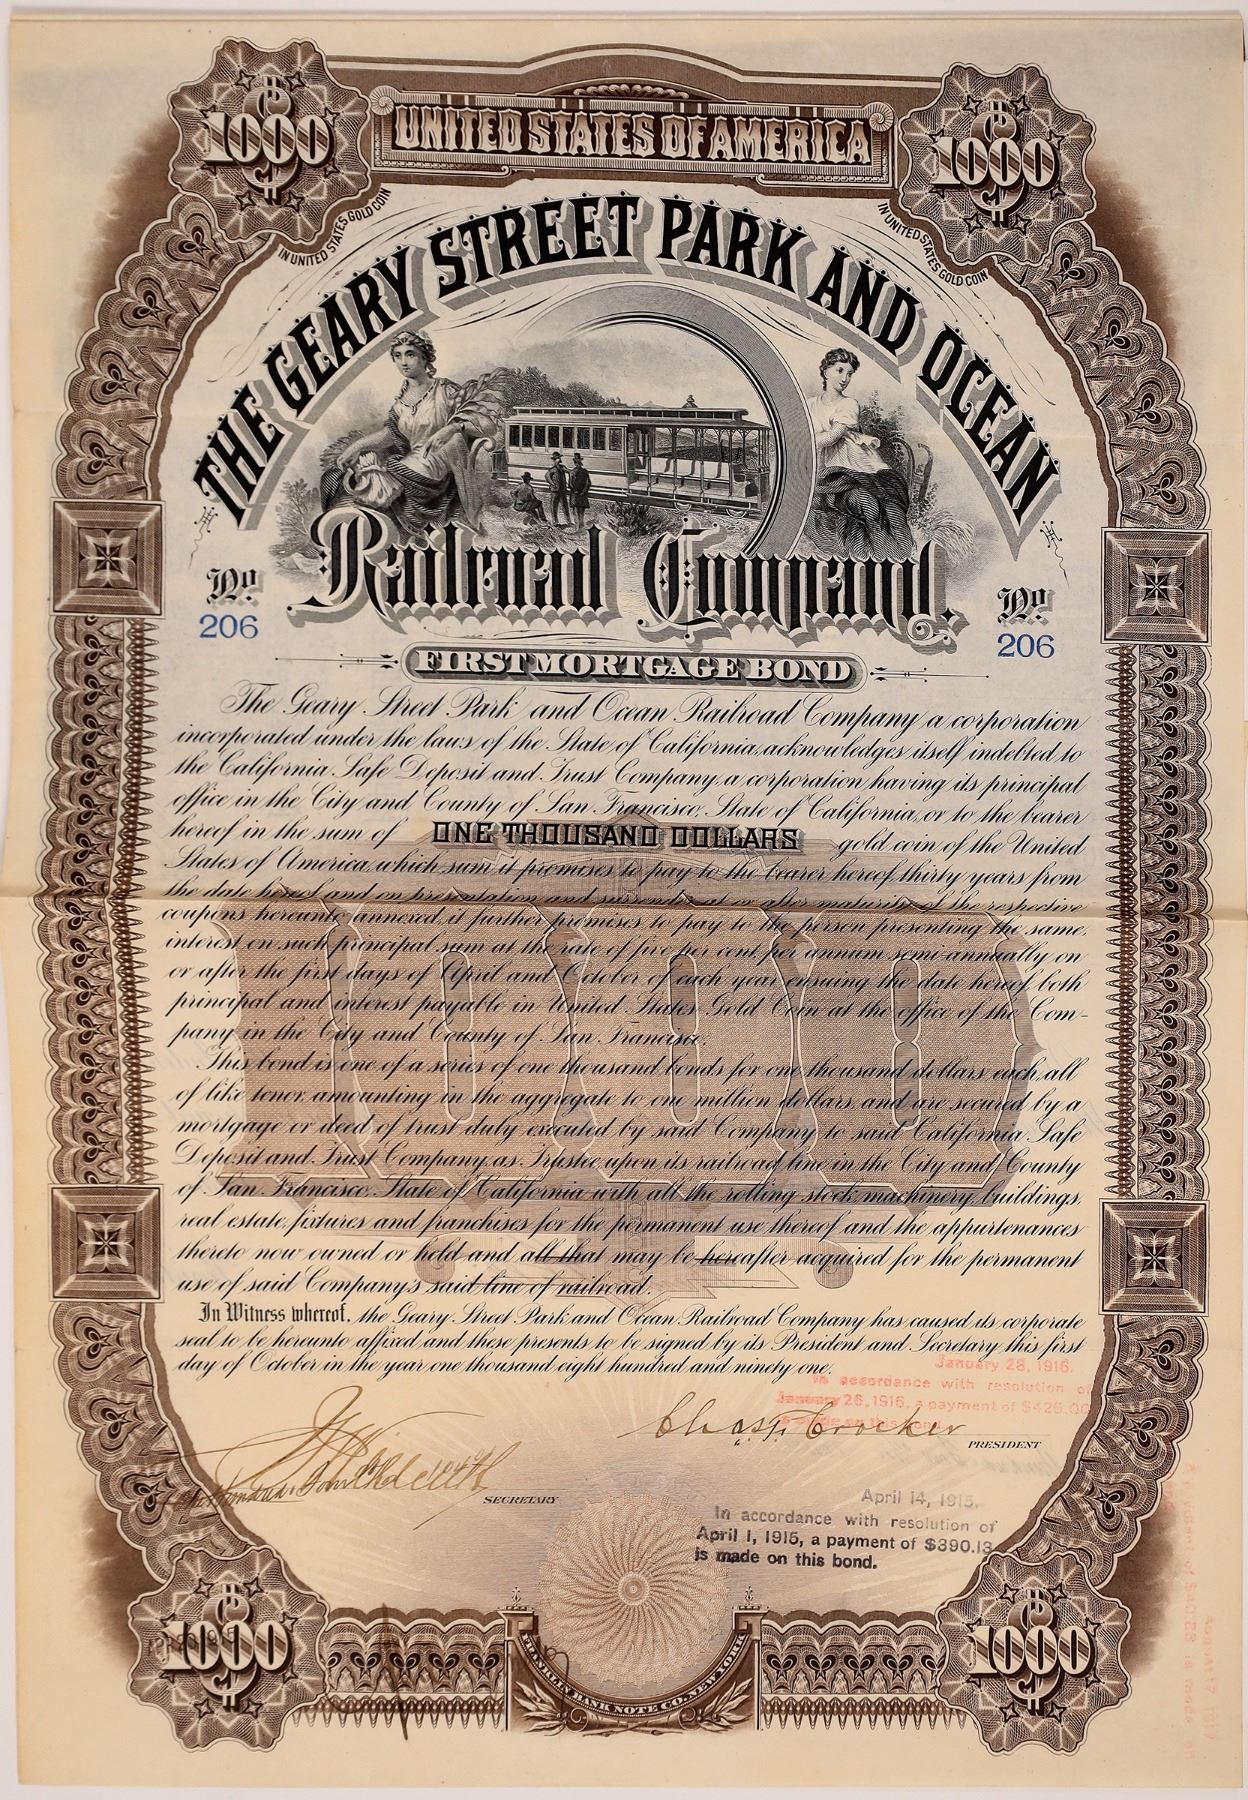 $1000
UNITED STATES OF AMERICA
$1000
IN UNITED STATES GOLD COIN
IN UNITED STATES GOLD COIN
THE GEARY STREET PARK AND OCEAN
Railroad Company.
No. 206
No. 206
FIRST MORTGAGE BOND
The Geary Street Park and Ocean Railroad Company a corporation
incorporated under the laws of the State of California, acknowledges itself indebted to
the California Safe Deposit and Trust Company, a corporation having its principal
office in the City and County of San Francisco, State of California, or to the bearer
hereof in the sum of ONE THOUSAND DOLLARS gold coin of the United
States of America, which sum it promises to pay to the bearer hereof, thirty years from
the date hereof and on presentation and surrender at or after maturity of the respective
coupons hereunto annexed, it further promises to pay to the person presenting the same,
interest on such principal sum at the rate of five per cent. per annum semi-annually on
or after the first days of April and October of each year ensuing the date hereof, both
principal and interest payable in United States Gold Coin at the office of the Com-
pany in the City and County of San Francisco.
This bond is one of a series of one thousand bonds for one thousand dollars each, all
of like tenor, amounting in the aggregate to one million dollars, and are secured by a
mortgage or deed of trust duly executed by said Company to said California Safe
Deposit and Trust Company, as Trustee, upon its railroad line in the City and County
of San Francisco, State of California with all the rolling stock, machinery, buildings,
real estate, fixtures and franchises for the permanent use thereof and the appurtenances
thereto now owned or held and all that may be hereafter acquired for the permanent
use of said Company's said line of railroad.
In Witness whereof, the Geary Street Park and Ocean Railroad Company has caused its corporate
seal to be hereunto affixed and these presents to be signed by its President and Secretary this first
day of October in the year one thousand eight hundred and ninety one.
January 28, 1916.
In accordance with resolution of
January 26, 1916, a payment of $425.00
is made on this bond.
Chas. F. Crocker
PRESIDENT
SECRETARY
April 14, 1915.
In accordance with resolution of
April 1, 1915, a payment of $390.13
is made on this bond.
$1000
$1000
BANK NOTE CO. NEW YORK